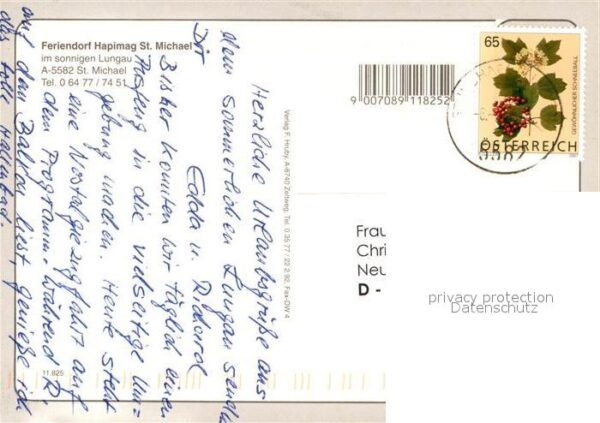 Feriendorf Hapimag St. Michael
im sonnigen Lungau
A-5582 St. Michael
Tel. 0 64 77 / 74 51
Herzliche Urlaubsgrüße aus
dem sommerlichen Lungau senden
Dir
Edda u. Richard
Bisher konnten wir täglich einen
Ausflug in die vielseitige Um=
gebung machen. Heute steht
eine Nostalgiezugfahrt auf
dem Programm. Während R.
auf dem Balkon liest, genieße ich
das tolle Hallenbad.
Verlag F. Hruby, A-8740 Zeltweg, Tel. 0 35 77 / 22 2 92, Fax-DW 4
11.825
9 007089 118252
65
GEWÖHNLICHER SCHNEEBALL
ÖSTERREICH
5582
Frau
Chri
Neu
D -
privacy protection
Datenschutz